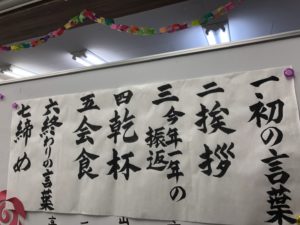 一、初の言葉
二 挨拶
三 今年一年の
振返
四 乾杯
五 会食
六 終わりの言葉
七 締め